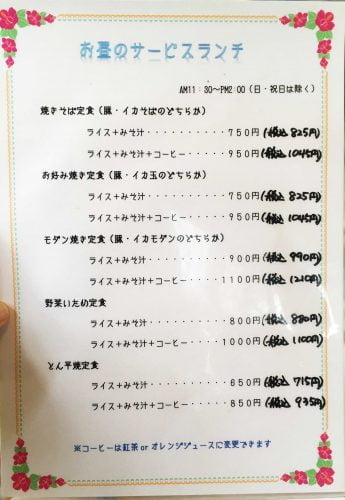 お昼のサービスランチ
AM11:30～PM2:00(日・祝日は除く)
焼きそば定食(豚・イカそばのどちらか)
ライス+みそ汁・・・・・・・・・・750円(税込825円)
ライス+みそ汁+コーヒー・・・・・950円(税込1045円)
お好み焼き定食(豚・イカ玉のどちらか)
ライス+みそ汁・・・・・・・・・・750円(税込825円)
ライス+みそ汁+コーヒー・・・・・950円(税込1045円)
モダン焼き定食(豚・イカモダンのどちらか)
ライス+みそ汁・・・・・・・・・・900円(税込990円)
ライス+みそ汁+コーヒー・・・・・1100円(税込1210円)
野菜いため定食
ライス+みそ汁・・・・・・・・・・800円(税込880円)
ライス+みそ汁+コーヒー・・・・・1000円(税込1100円)
とん平焼定食
ライス+みそ汁・・・・・・・・・・650円(税込715円)
ライス+みそ汁+コーヒー・・・・・850円(税込935円)
※コーヒーは紅茶orオレンジジュースに変更できます